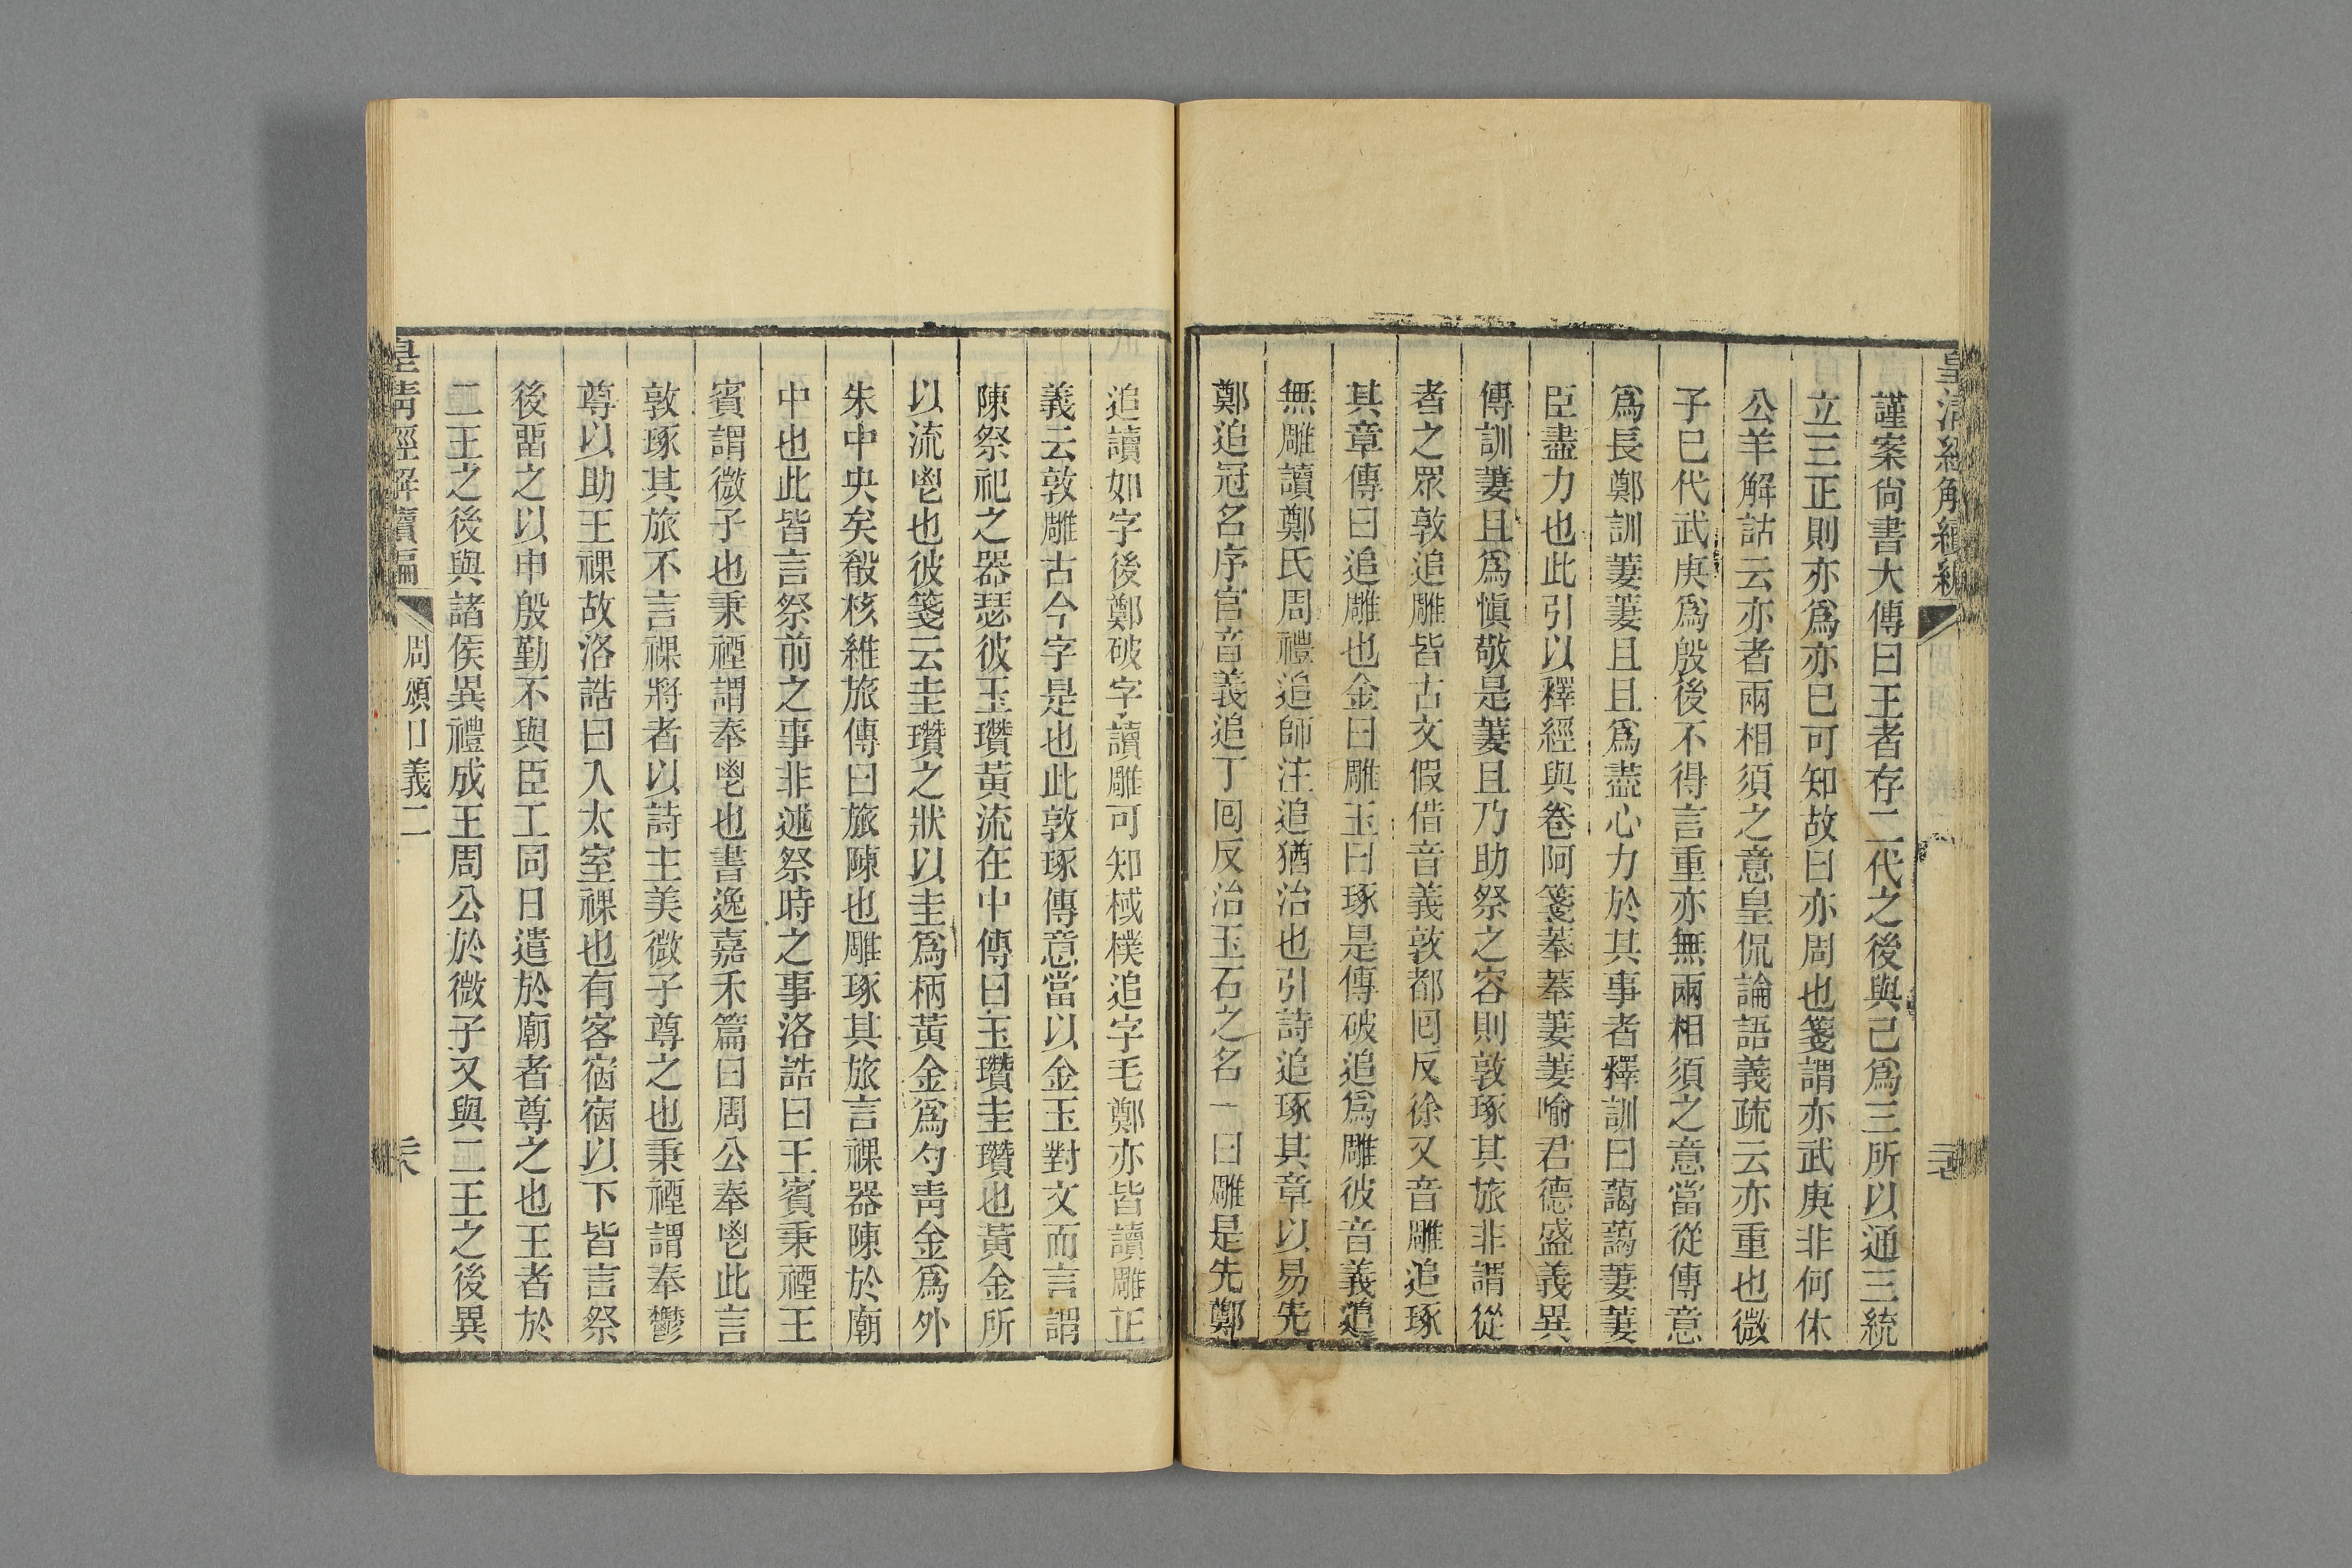 謹案尙書大傳曰王者存二代之後與己爲三所以通三統
立三正則亦爲亦已可知故曰亦周也箋謂亦武庚非何休
公羊解詁云亦者兩相須之意皇侃論語義疏云亦重也微
子已代武庚爲殷後不得言重亦無兩相須之意當從傳意
爲長鄭訓萋萋且且爲盡心力於其事者釋訓曰藹藹萋萋
臣盡力也此引以釋經與卷阿箋菶菶萋萋喻君德盛義異
傳訓萋且爲愼敬是萋且乃助祭之容則敦琢其旅非謂從
者之眾敦追雕皆古文假借音義敦都囘反徐又音雕追琢
其章傳曰追雕也金曰雕玉曰琢是傳破追爲雕彼音義追
無雕讀鄭氏周禮追師注追猶治也引詩追琢其章以易先
鄭追冠名序官音義追丁囘反治玉石之名一曰雕是先鄭
追讀如字後鄭破字讀雕可知棫樸追字毛鄭亦皆讀雕正
義云敦雕古今字是也此敦琢傳意當以金玉對文而言謂
陳祭祀之器瑟彼玉瓚黃流在中傳曰玉瓚圭瓚也黃金所
以流鬯也彼箋云圭瓚之狀以圭爲柄黃金爲勺靑金爲外
朱中央矣殽核維旅傳曰旅陳也雕琢其旅言祼器陳於廟
中也此皆言祭前之事非述祭時之事洛誥曰王賓秉禋王
賓謂微子也秉禋謂奉鬯也書逸嘉禾篇曰周公奉鬯此言
敦琢其旅不言祼將者以詩主美微子尊之也秉禋謂奉鬱
尊以助王祼故洛誥曰入太室祼也有客宿宿以下皆言祭
後畱之以申殷勤不與臣工同日遣於廟者尊之也王者於
二王之後與諸侯異禮成王周公於微子又與二王之後異
皇淸經解續編
周頌口義二